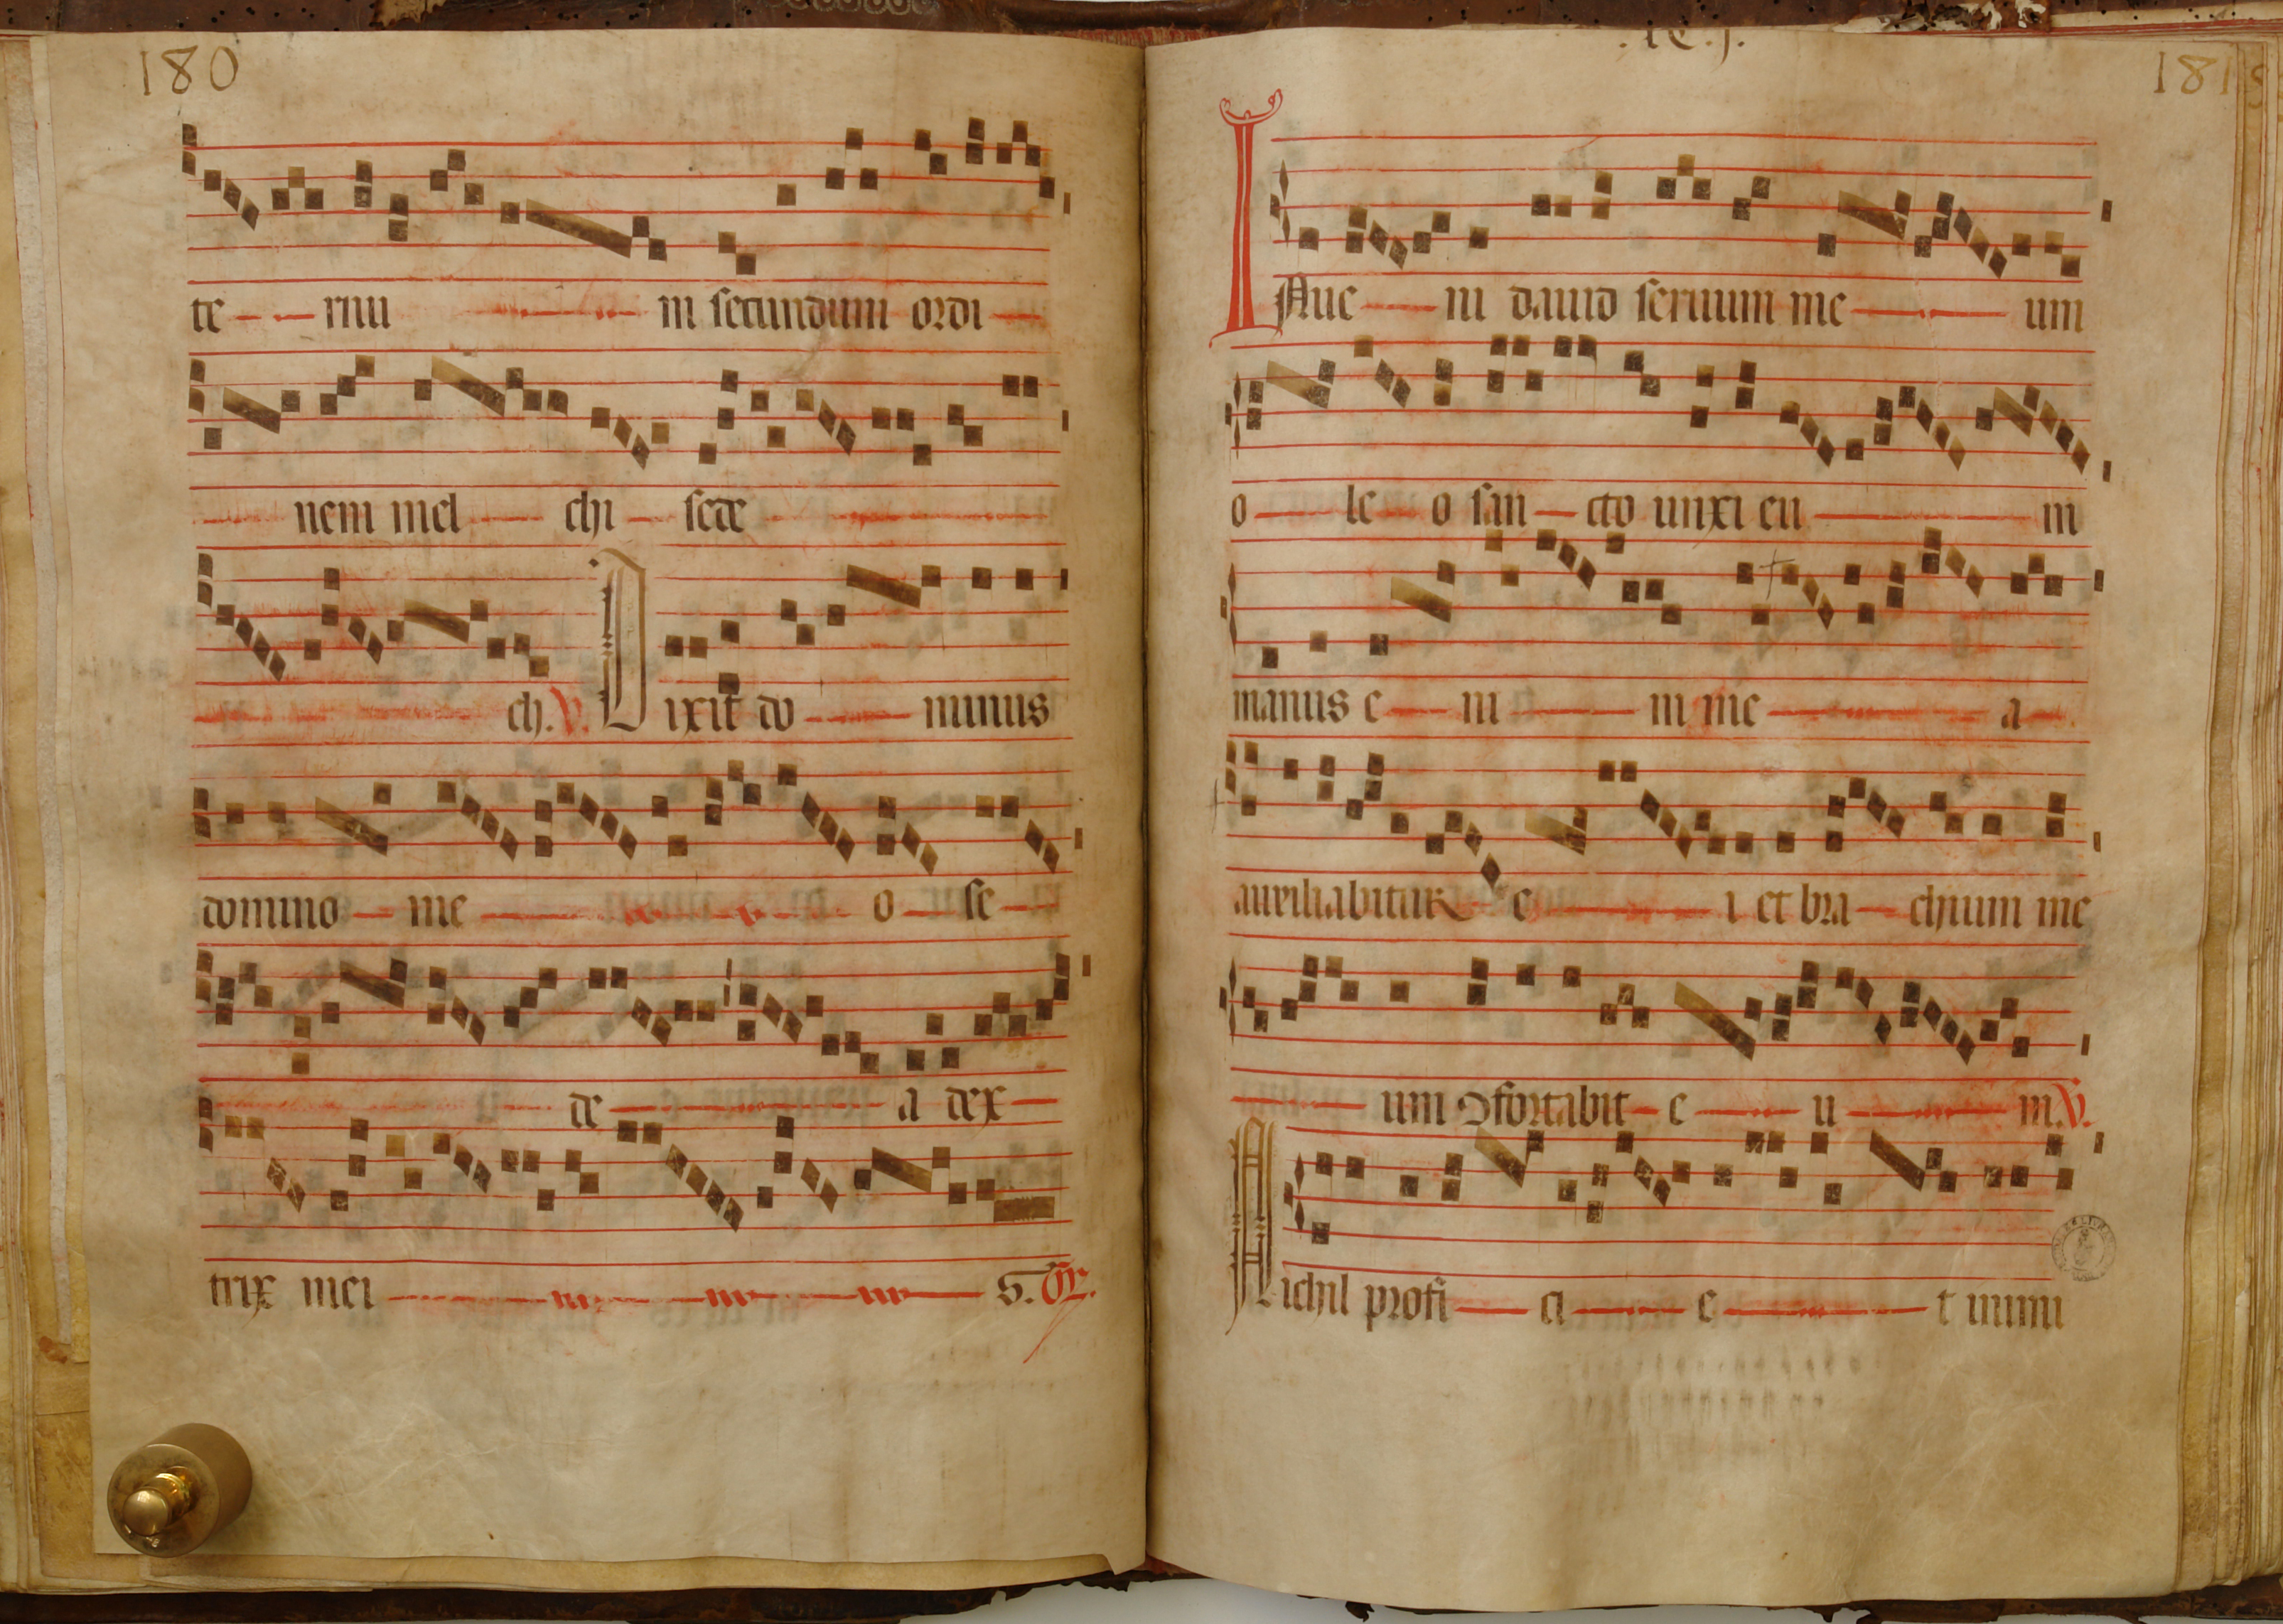 180
te rnu m secundum ordi
nem mel chi sede
ch. V. Dixit do minus
domino me o se
de a dex
trix mei S. Gr.
181
INue ni dauid seruum me um
o le o san cto unxi eu m
manus e ni m me a
auxiliabitur e i et bra chium me
um ɔfortabit e u m. V.
Nichil profi ci e t inimi